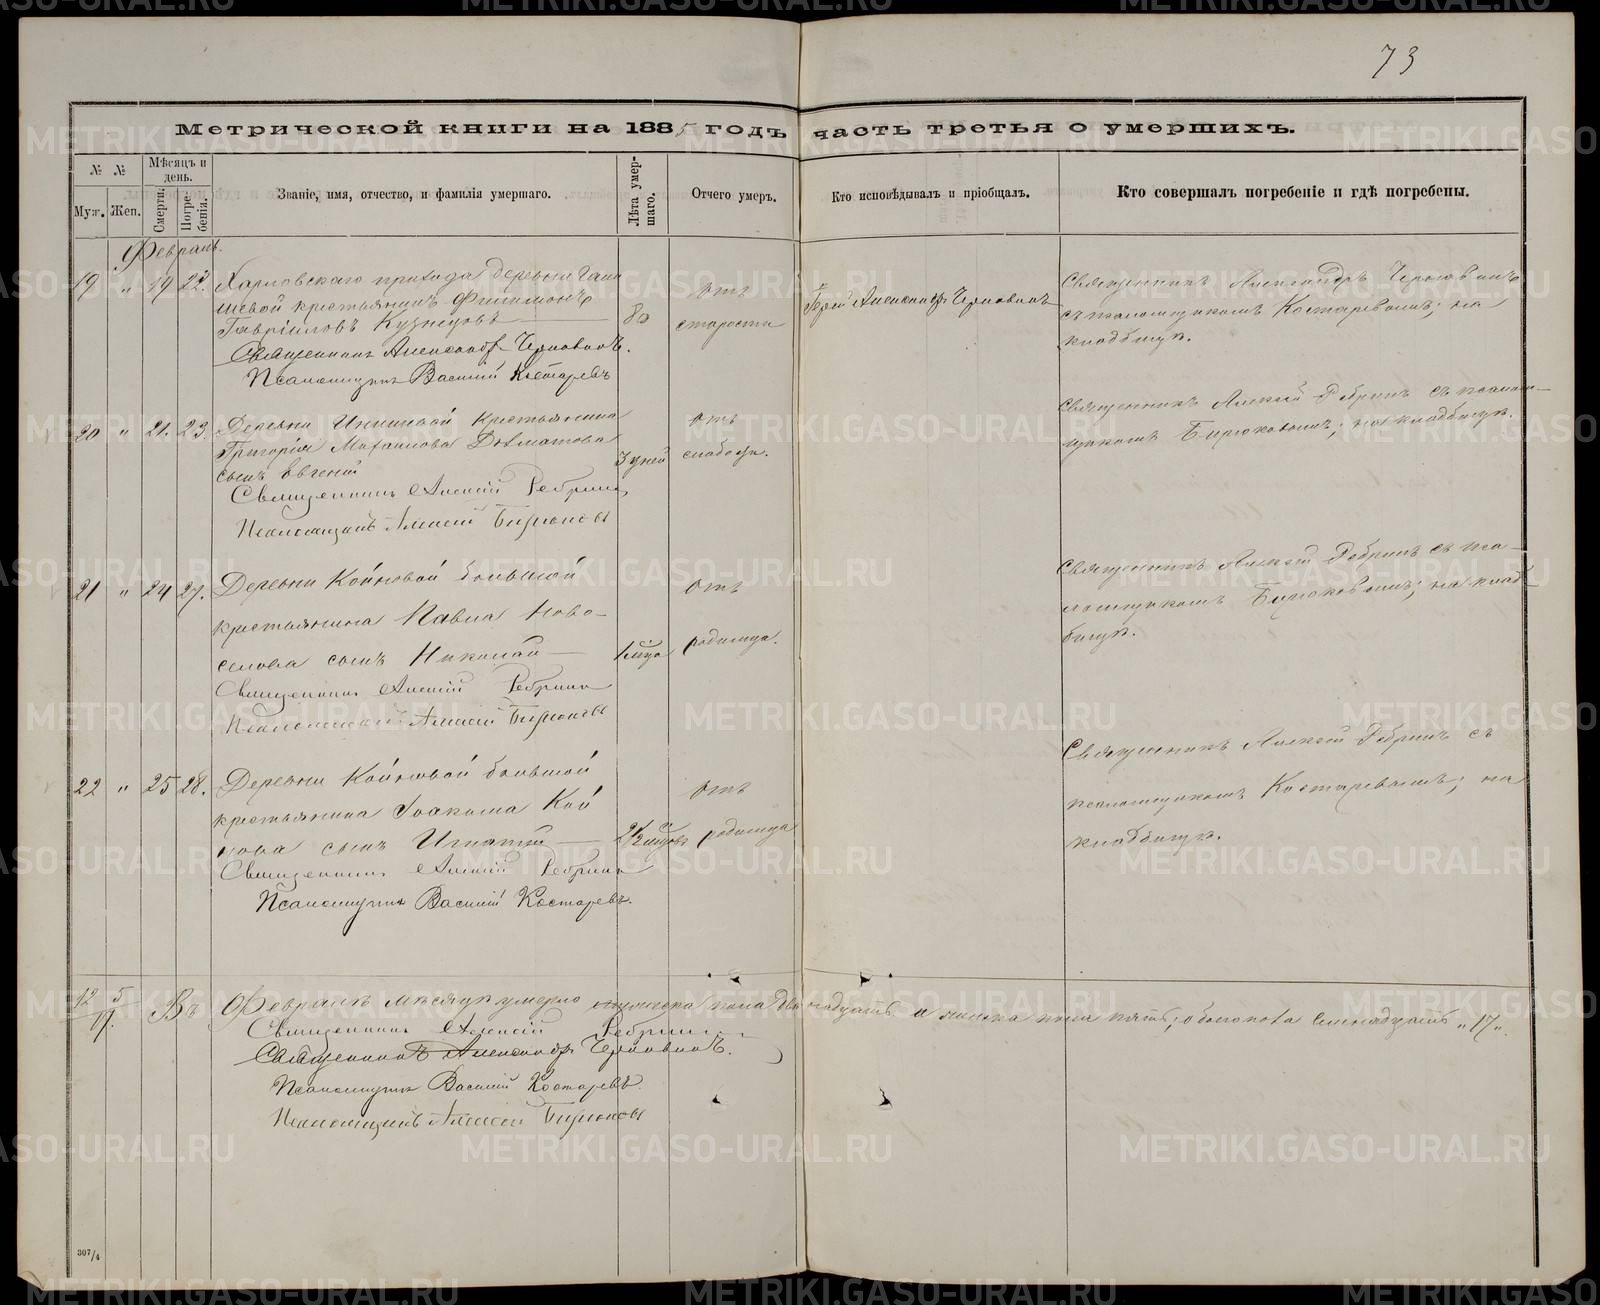 73
Метрической книги на 1885 годъ часть третья о умершихъ.
№ № Мѣсяцъ и день.
Муж. Жен. Смерти. Погребенія.
Званіе, имя, отчество, и фамилія умершаго.
Лѣта умершаго.
Отчего умеръ.
Кто исповѣдывалъ и пріобщалъ.
Кто совершалъ погребеніе и гдѣ погребены.
Февраль.
19 " 19 22. Харловскаго прихода деревни
шевой крестьянинъ Филимонъ
Гавріиловъ Кузнецовъ
80
Отъ
старости
Іерей Александръ Черновинъ
Священникъ Александръ Черновинъ
съ псаломщикомъ Костаревымъ; на
кладбищѣ.
Священникъ Александръ Черновинъ.
Псаломщикъ Василій Костаревъ
20 " 21. 23. Деревни крестьянина
Григорія Долматова
сынъ Евгеній
3 дней
Отъ
слабости.
Священникъ Алексій Ребринъ съ псалом-
щикомъ Бирюковымъ; на кладбищѣ.
Священникъ Алексій Ребринъ
Псаломщикъ Алексій Бирюковъ
21 " 24 27. Деревни Койновой большой
крестьянина Павла Ново-
селова сынъ Николай
1 мца
Отъ
родимца.
Священникъ Алексій Ребринъ съ пса-
ломщикомъ Бирюковымъ; на клад-
бищѣ.
Священникъ Алексій Ребринъ
Псаломщикъ Алексій Бирюковъ
22 " 25 28. Деревни Койновой большой
крестьянина Іоакима Кой
нова сынъ Игнатій
2½ мцовъ
Отъ
родимца
Священникъ Алексій Ребринъ съ
псаломщикомъ Костаревымъ; на
кладбищѣ.
Священникъ Алексій Ребринъ
Псаломщикъ Василій Костаревъ.
12 5
17. Въ Февралѣ мѣсяцѣ умерло мужеска пола двенадцать и женска пола пять; обоего пола семнадцать „17„.
Священникъ Алексій Ребринъ
Священникъ Александръ Черновинъ.
Псаломщикъ Василій Костаревъ.
Псаломщикъ Алексій Бирюковъ
307/4
METRIKI.GASO-URAL.RU